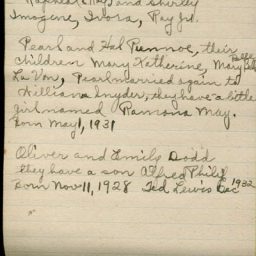 (Ray) and Shirley
Imogene, Ivora, Ray Jr.
Pearl and Hal Pennoe, their
children Mary Katherine, Mary Belle
La Von, Pearl married again to
William Snyder, they have a little
girl named Ramona May.
Born May 1, 1931
Oliver and Emily Dodd
they have a son Alfred Philip
Born Nov 11, 1928 Ted Lewis Dec 1932